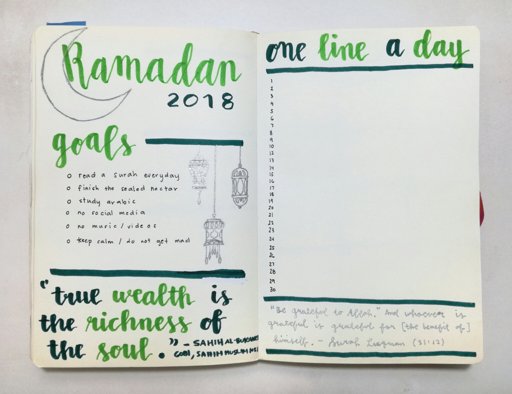 Ramadan
2018
goals
o read a surah everyday
o finish the sealed nectar
o study arabic
o no social media
o no music/videos
o keep calm / do not get mad
"true wealth is
the richness of
the soul."
- SAHIH AL-BUKHARI
SAHIH MUSLIM
one line a day
1
2
3
4
5
6
7
8
9
10
11
12
13
14
15
16
17
18
19
20
21
22
23
24
25
26
27
28
29
30
"Be grateful to Allah." And whoever is
grateful is grateful for [the benefit of]
himself. - Surah Luqman (31:12)